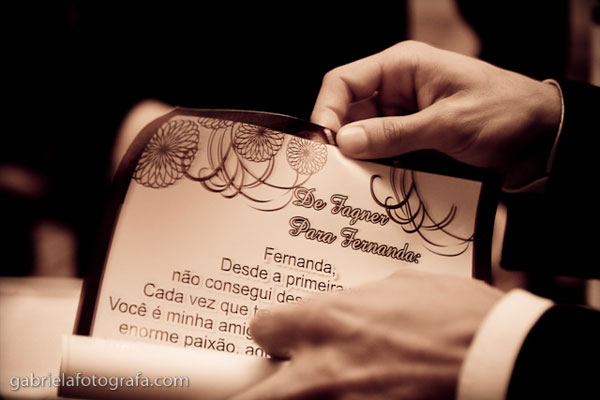 De Fagner
Para Fernanda:
Fernanda,
Desde a primeira
não consegui des
Cada vez que te
Você é minha amig
enorme paixão, ao
gabrielafotografa.com